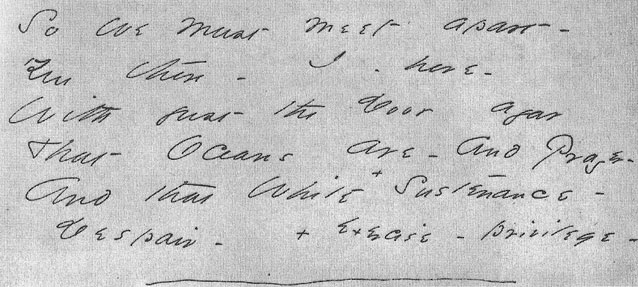 So We must meet apart -
You there - I - here -
With just the Door ajar
That Oceans are - And Prayer -
And that White + Sustenance -
Despair -     + Exercise - Privilege -